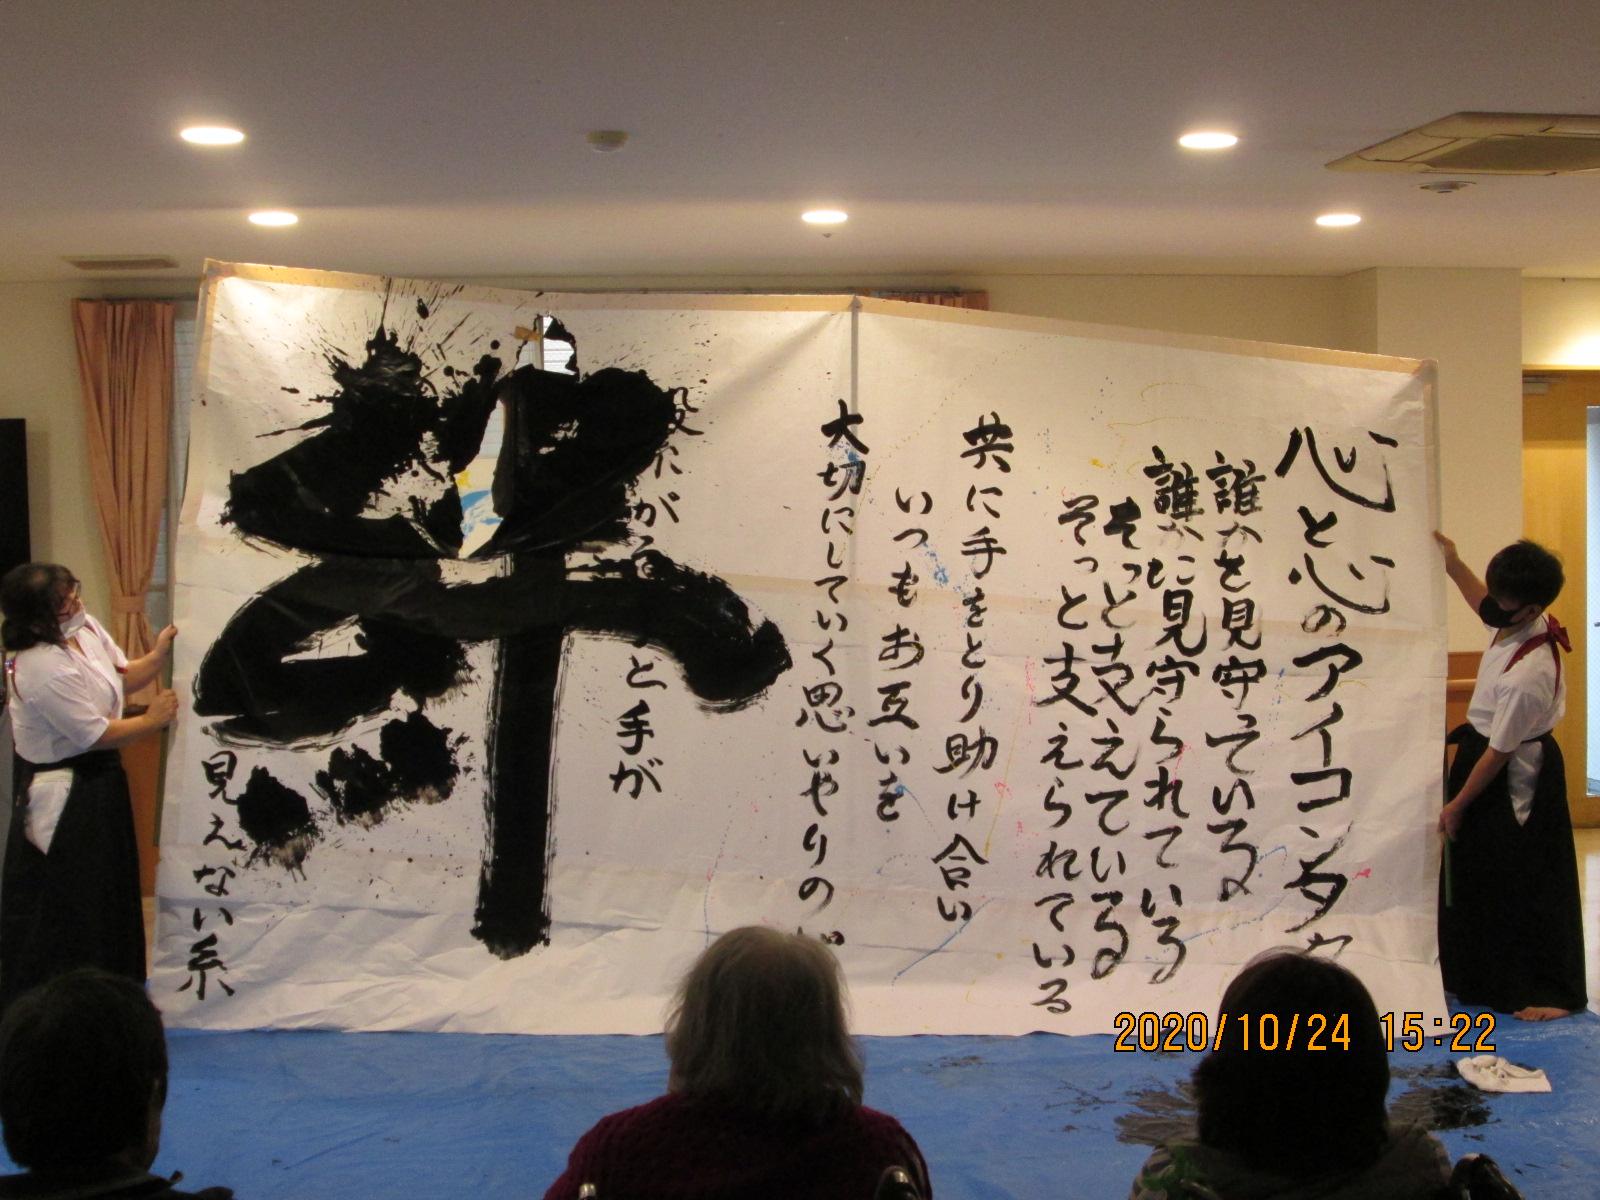 心と心のアイコンタク
誰かを見守っている
誰かに見守られている
そっと支えている
そっと支えられている
共に手をとり助け合い
いつもお互いを
大切にしていく思いやりの
が
と手が
絆
見えない糸
2020/10/24 15:22